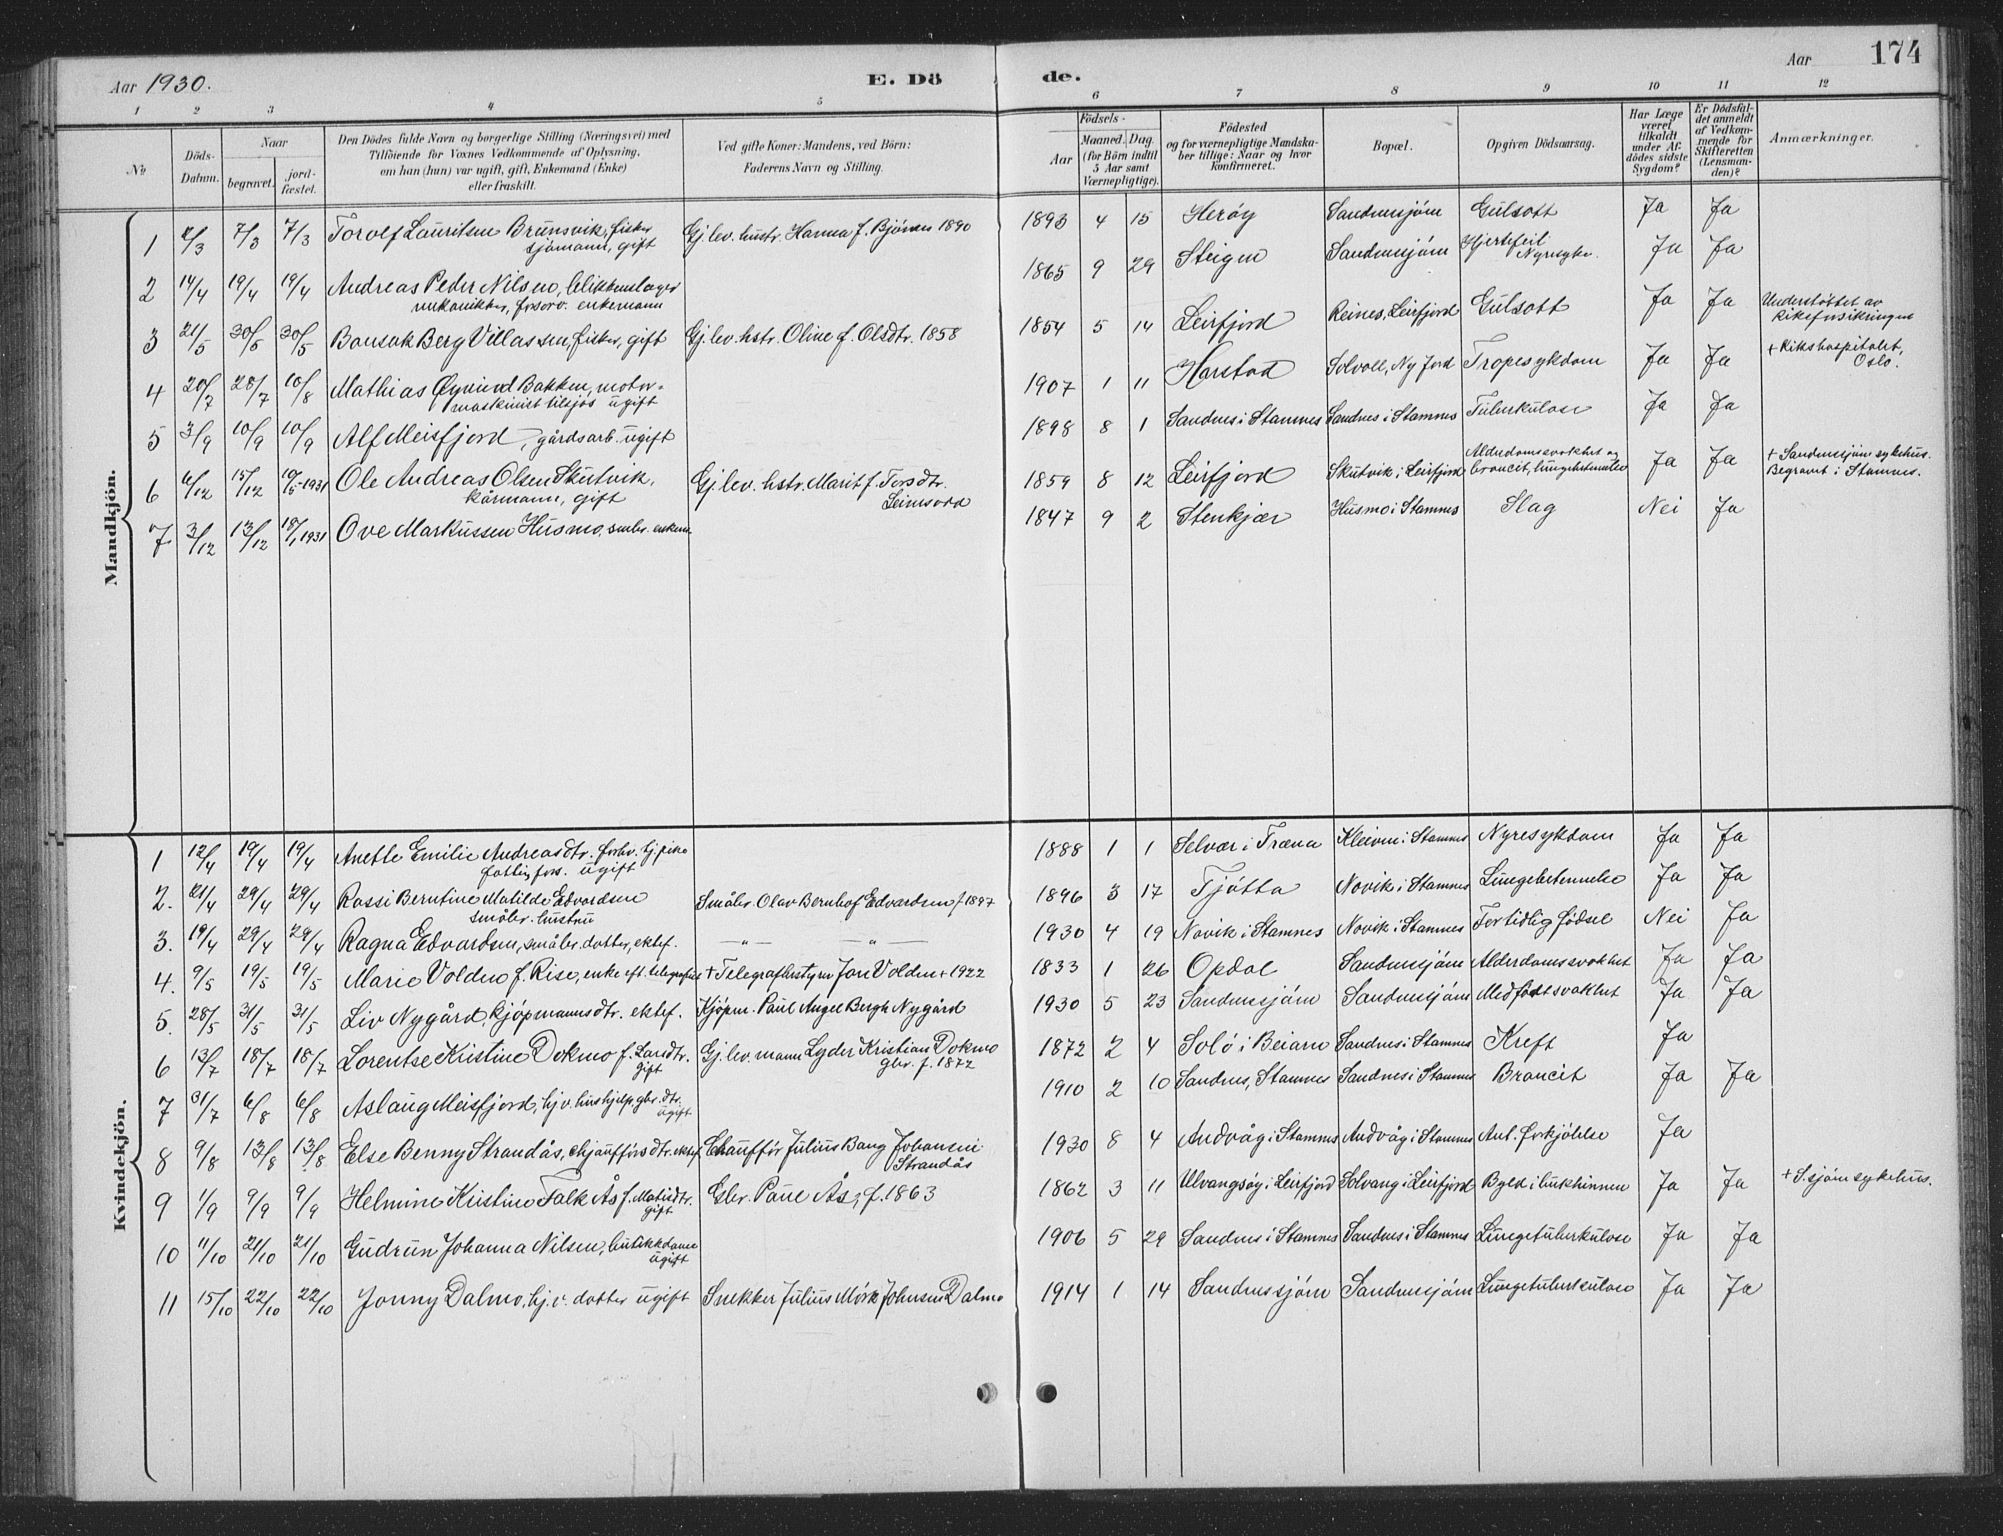 Aar 1930.
E. Dö
de.
Aar
174
1 2 3 4 5 6 7 8 9 10 11 12
No
Döds-
Datum.
Naar
begravet.
jord-
fæstet.
Den Dödes fulde Navn og borgerlige Stilling (Næringsvei) med
Tilföiende for Voxnes Vedkommende af Oplysning,
om han (hun) var ugift, gift, Enkemand (Enke)
eller fraskilt.
Ved gifte Koner: Mandens, ved Börn:
Faderens Navn og Stilling.
Födsels-
Aar
Maaned.
Dag.
(for Börn indtil
5 Aar samt
Værnepligtige).
Födested
og for værnepligtige Mandska-
ber tillige: Naar og hvor
konfirmeret.
Bopæl.
Opgiven Dödsaarsag.
Har Læge
været
tilkaldt
under Af-
dødes sidste
Sygdom?
Er Dödsfal-
det anmeldt
af Vedkom-
mende for
Skifteretten
(Lensman-
den)?
Anmærkninger.
Mandkjön.
1 2/3 7/3 7/3 Torolf Lauritsen Brunsvik, fisker Gj. lev. hustr. Hanna f. Bjönnes 1890 1893 4 15 Herøy Sandnessjöen Gulsott Ja Ja
sjömann, gift
2 14/4 19/4 19/4 Andreas Peder Nilsen, blikkenslager 1865 9 29 Steigen Sandnessjöen Hjertefeil Ja Ja
mekanikker, forsörv. enkemann
Nyresyke.
3 21/5 30/5 30/5 Bonsak Berg Villassen, fisker, gift Gj. lev. hstr. Oline f. Olsdtr. 1858 1854 5 14 Leirfjord Reines, Leirfjord Gulsott Ja Ja Understöttet av
Riksforsikringen
4 20/7 28/7 10/8 Mathias Öyvind Bakken, motor- 1907 1 11 Harstad Solvoll, Ny Jord Tropesykdom Ja Ja + Rikshospitalet,
maskinist tilsjös ugift
Oslo.
5 3/9 10/9 10/9 Alf Meisfjord, gårdsarb. ugift 1898 8 1 Sandnes i Stamnes Sandnes i Stamnes Tuberkulose Ja Ja
6 6/12 15/12 10/5-1931 Ole Andreas Olsen Skutvik, Gj. lev. hstr. Marit f. Torsdtr. 1859 8 12 Leirfjord Skutvik i Leirfjord Alderdomssvakhet og Ja Ja + Sandnessjöen sykehus.
kårmann, gift
Leinsvold
broncit, lungebetennelse
Begravet i Stamnes.
7 3/12 13/12 18/1 1931 Ove Markussen Husmo, småbr. enkem. 1847 9 2 Stenkjær Husmo i Stamnes Slag Nei Ja
Kvindekjön.
1 12/4 19/4 19/4 Anette Emilie Andreasdtr. forhv. tj. pike 1888 1 1 Selvær i Træna Kleiven i Stamnes Nyresykdom Ja Ja
fattig fors. ugift
2. 21/4 29/4 29/4 Rossi Berntine Matilde Edvardsen Småbr. Olav Bernhof Edvardsen f. 1897 1896 3 17 Tjötta Novik i Stamnes Lungebetennelse Ja Ja
småbr. hustru
3. 19/4 29/4 29/4 Ragna Edvardsen, småbr. datter, ektef. —„— —„— 1930 4 19 Novik i Stamnes Novik i Stamnes For tidlig födsel Nei Ja
4. 9/5 19/5 19/5 Marie Volden f. Rise, enke eft. telegrafist + Telegrafbestyrer Jon Volden + 1922 1833 1 26 Opdal Sandnessjöen Alderdomssvakhet Ja Ja
5. 28/5 31/5 31/5 Liv Nygård, kjöpmannsdtr. ektef. Kjöpm. Paul Angel Bergh Nygård 1930 5 23 Sandnessjöen Sandnessjöen Medfödt svakhet Ja Ja
6 13/7 18/7 18/7 Lorentse Kristine Dokmo f. Larsdtr. Gj. lev. mann Lyder Kristian Dokmo 1872 2 4 Solö i Beiarn Sandnes i Stamnes Kreft Ja
gift
gbr. f. 1872
7 31/7 6/8 6/8 Aslaug Meisfjord, hjv. hushjelp, gbr. dtr. 1910 2 10 Sandnes, Stamnes Sandnes i Stamnes Broncit Ja Ja
ugift
8 9/8 13/8 13/8 Else Benny Strandås, chjaufförsdtr. ektef. Chaufför Julius Bang Johansen 1930 8 4 Andvåg i Stamnes Andvåg i Stamnes Ant. forkjölelse Ja
Strandås
9 1/9 9/9 9/9 Helmine Kristine Falk Ås f. Matisdtr. Gbr. Paul Ås, f. 1863 1862 3 11 Ulvangsöy i Leirfjord Solvang i Leirfjord Byld i bukhinnen Ja Ja + S.sjöen sykehus.
gift
10 11/10 21/10 21/10 Gudrun Johanna Nilsen, butikkdame 1906 5 29 Sandnes i Stamnes Sandnes i Stamnes Lungetuberkulose Ja Ja
ugift
11 15/10 22/10 22/10 Jonny Dalmo, hj. v. datter ugift Snekker Julius Mörk Johnsen Dalmo 1914 1 14 Sandnessjöen Sandnessjöen Lungetuberkulose Ja Ja